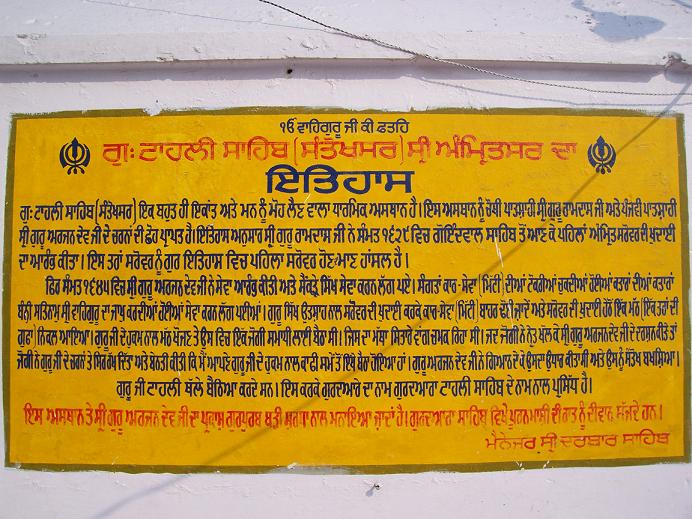 ੴ ਵਾਹਿਗੁਰੂ ਜੀ ਕੀ ਫਤਹਿ
ਗੁ: ਟਾਹਲੀ ਸਾਹਿਬ (ਸੰਤੋਖਸਰ) ਸ੍ਰੀ ਅੰਮ੍ਰਿਤਸਰ ਦਾ
ਇਤਿਹਾਸ
ਗੁ: ਟਾਹਲੀ ਸਾਹਿਬ (ਸੰਤੋਖਸਰ) ਇਕ ਬਹੁਤ ਹੀ ਇਕਾਂਤ ਅਤੇ ਮਨ ਨੂੰ ਮੋਹ ਲੈਣ ਵਾਲਾ ਧਾਰਮਿਕ ਅਸਥਾਨ ਹੈ। ਇਸ ਅਸਥਾਨ ਨੂੰ ਚੌਥੀ ਪਾਤਸ਼ਾਹੀ ਸ੍ਰੀ ਗੁਰੂ ਰਾਮਦਾਸ ਜੀ ਅਤੇ ਪੰਜਵੀ ਪਾਤਸ਼ਾਹੀ
ਸ੍ਰੀ ਗੁਰੂ ਅਰਜਨ ਦੇਵ ਜੀ ਦੇ ਚਰਨਾਂ ਦੀ ਛੋਹ ਪ੍ਰਾਪਤ ਹੈ। ਇਤਿਹਾਸ ਅਨੁਸਾਰ ਸ੍ਰੀ ਗੁਰੂ ਰਾਮਦਾਸ ਜੀ ਨੇ ਸੰਮਤ ੧੬੨੯ ਵਿਚ ਗੋਇੰਦਵਾਲ ਸਾਹਿਬ ਤੋਂ ਆਣ ਕੇ ਪਹਿਲਾਂ ਅੰਮ੍ਰਿਤ ਸਰੋਵਰ ਦੀ ਖੁਦਾਈ
ਦਾ ਆਰੰਭ ਕੀਤਾ। ਇਸ ਤਰਾਂ ਸਰੋਵਰ ਨੂੰ ਗੁਰ ਇਤਿਹਾਸ ਵਿਚ ਪਹਿਲਾ ਸਰੋਵਰ ਹੋਣ ਮਾਣ ਹਾਂਸਲ ਹੈ।
ਫਿਰ ਸੰਮਤ ੧੬੪੫ ਵਿਚ ਸ੍ਰੀ ਗੁਰੂ ਅਰਜਨ ਦੇਵ ਜੀ ਨੇ ਸੇਵਾ ਆਰੰਭ ਕੀਤੀ ਅਤੇ ਸੈਂਕੜੇ ਸਿੱਖ ਸੇਵਾ ਕਰਨ ਲੱਗ ਪਏ। ਸੰਗਤਾਂ ਕਾਰ-ਸੇਵਾ (ਮਿੱਟੀ) ਦੀਆਂ ਟੋਕਰੀਆਂ ਚੁਕਦੀਆਂ ਹੋਈਆਂ ਕਤਾਰਾਂ ਦੀਆਂ ਕਤਾਰਾਂ
ਬੰਨੀ ਸਤਿਨਾਮੁ ਸ੍ਰੀ ਵਾਹਿਗੁਰੂ ਦਾ ਜਾਪੁ ਕਰਦੀਆਂ ਹੋਈਆਂ ਸੇਵਾ ਕਰਨ ਲੱਗ ਪਈਆਂ। ਗੁਰੂ ਸਿੱਖ ਉਤਸ਼ਾਹ ਨਾਲ ਸਰੋਵਰ ਦੀ ਖੁਦਾਈ ਕਰਕੇ ਕਾਰ-ਸੇਵਾ (ਮਿੱਟੀ) ਬਾਹਰ ਅਤੇ ਸਰੋਵਰ ਦੀ ਖੁਦਾਈ ਹੋਈ ਇੱਕ ਮੱਠ (ਇਕ ਤਰਾਂ ਦੀ
ਗੁਫਾ) ਨਿਕਲ ਆਇਆ। ਗੁਰੂ ਜੀ ਦੇ ਹੁਕਮ ਨਾਲ ਮਠ ਖੋਲਣ ਤੇ ਉਸ ਵਿਚ ਇਕ ਜੋਗੀ ਸਮਾਧੀ ਲਾਈ ਬੈਠਾ ਸੀ। ਜਿਸ ਦਾ ਮੱਥਾ ਸਿਤਾਰੇ ਵਾਂਗ ਚਮਕ ਰਿਹਾ ਸੀ। ਜਦ ਜੋਗੀ ਨੇ ਨੇਤ੍ਰ ਖੋਲ ਕੇ ਸ੍ਰੀ ਗੁਰੂ ਅਰਜਨ ਦੇਵ ਜੀ ਦੇ ਦਰਸ਼ਨ ਕੀਤੇ ਤਾਂ
ਜੋਗੀ ਨੇ ਗੁਰੂ ਜੀ ਦੇ ਚਰਨਾਂ ਤੇ ਸਿਰ ਰੱਖ ਦਿੱਤਾ ਅਤੇ ਬੇਨਤੀ ਕੀਤੀ ਕਿ ਮੈਂ ਆਪਣੇ ਗੁਰੂ ਜੀ ਦੇ ਹੁਕਮ ਨਾਲ ਕਾਫੀ ਸਮੇਂ ਤੋਂ ਇੱਥੇ ਬੈਠਾ ਹੋਇਆ ਹਾਂ। ਗੁਰੂ ਅਰਜਨ ਦੇਵ ਜੀ ਨੇ ਗਿਆਨ ਦੇ ਕੇ ਉਸਦਾ ਉਧਾਰ ਕੀਤਾ ਸੀ ਅਤੇ ਉਸ ਨੂੰ ਸੰਤੋਖ ਬਖਸ਼ਿਆ।
ਗੁਰੂ ਜੀ ਟਾਹਲੀ ਥੱਲੇ ਬੈਠਿਆ ਕਰਦੇ ਸਨ। ਇਸ ਕਰਕੇ ਗੁਰਦਆਰੇ ਦਾ ਨਾਮ ਗੁਰਦਆਰਾ ਟਾਹਲੀ ਸਾਹਿਬ ਦੇ ਨਾਮ ਨਾਲ ਪ੍ਰਸਿੱਧ ਹੈ।
ਇਸ ਅਸਥਾਨ ਤੇ ਸ੍ਰੀ ਗੁਰੂ ਅਰਜਨ ਦੇਵ ਜੀ ਦਾ ਪ੍ਰਕਾਸ਼ ਗੁਰਪੁਰਬ ਬੜੀ ਸ਼ਰਧਾ ਨਾਲ ਮਨਾਇਆ ਜਾਦਾਂ ਹੈ। ਗੁਰਦਆਰਾ ਸਾਹਿਬ ਵਿਖੇ ਪੂਰਨਮਾਸ਼ੀ ਦੀ ਰਾਤ ਨੂੰ ਦੀਵਾਨ ਸੱਜਦੇ ਹਨ।
ਮੈਨੇਜਰ ਸ੍ਰੀ ਦਰਬਾਰ ਸਾਹਿਬ